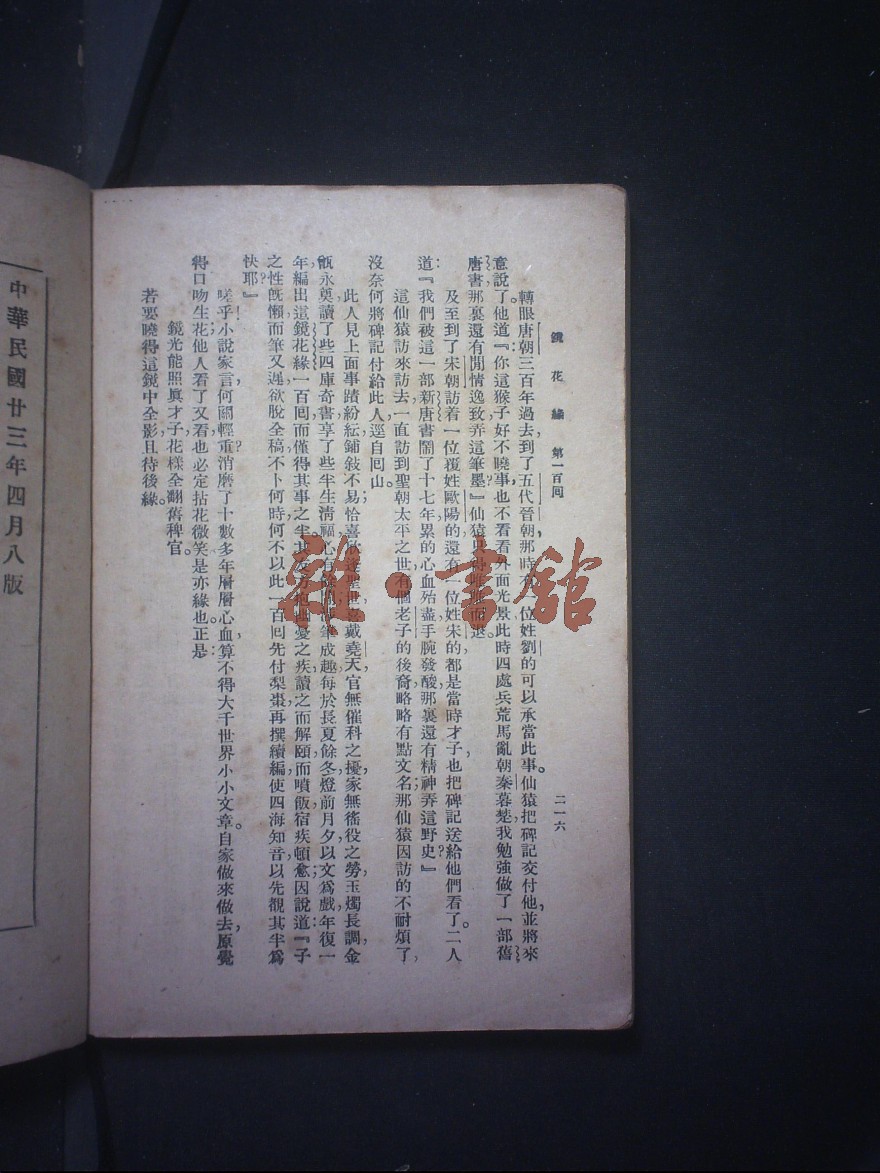 鏡花緣 第一百回 二一六
轉眼唐朝三百年過去，到了五代晉朝，那時有一位姓劉的可以承當此事。仙猿把碑記交付他，並將來
意說了。他道：『你這猴子好不曉事，也不看看外面光景，此時四處兵荒馬亂，朝秦暮楚，我勉強做了一部舊
唐書，那裏還有閒情逸致弄這筆墨？』仙猿只得 而退。
及至到了宋朝，訪着一位覆姓歐陽的，還有一位姓宋的，都是當時才子，也把碑記送給他們看了。二人
道：『我們被這一部新唐書鬧了十七年，累的心血殆盡，手腕發酸，那裏還有精神弄這野史？』
這仙猿訪來訪去，一直訪到聖朝太平之世，有個老子的後裔，略略有點文名；那仙猿因訪的不耐煩了，
沒奈何，將碑記付給此人，逕自回山。
此人見上面事蹟紛紜，鋪敍不易，恰喜欣逢聖世，喜戴堯天，官無催科之擾，家無徭役之勞，玉燭長調，金
甌永奠；讀了些四庫奇書，享了些半生清福。心有餘 筆成趣，每於長夏餘冬，燈前月夕，以文爲戲，年復一
年，編出這鏡花緣一百回，而僅得其事之半。其友方抱幽憂之疾，讀之而解頤，而噴飯，宿疾頓愈，因說道：『子
之性旣懶而筆又遲，欲脫全稿，不卜何時；何不以此一百回先付梨棗，再撰續編，使四海知音以先覩其半爲
快耶？』
嗟乎！小說家言，何關輕重！消磨了十數多年層層心血，算不得大千世界小小文章。自家做來做去，原覺
得口吻生花；他人看了又看，也必定拈花微笑：是亦緣也。正是：
鏡光能照眞才子，花樣全翻舊稗官。
若要曉得這鏡中全影，且待後緣。
中華民國廿三年四月八版
雜·書館